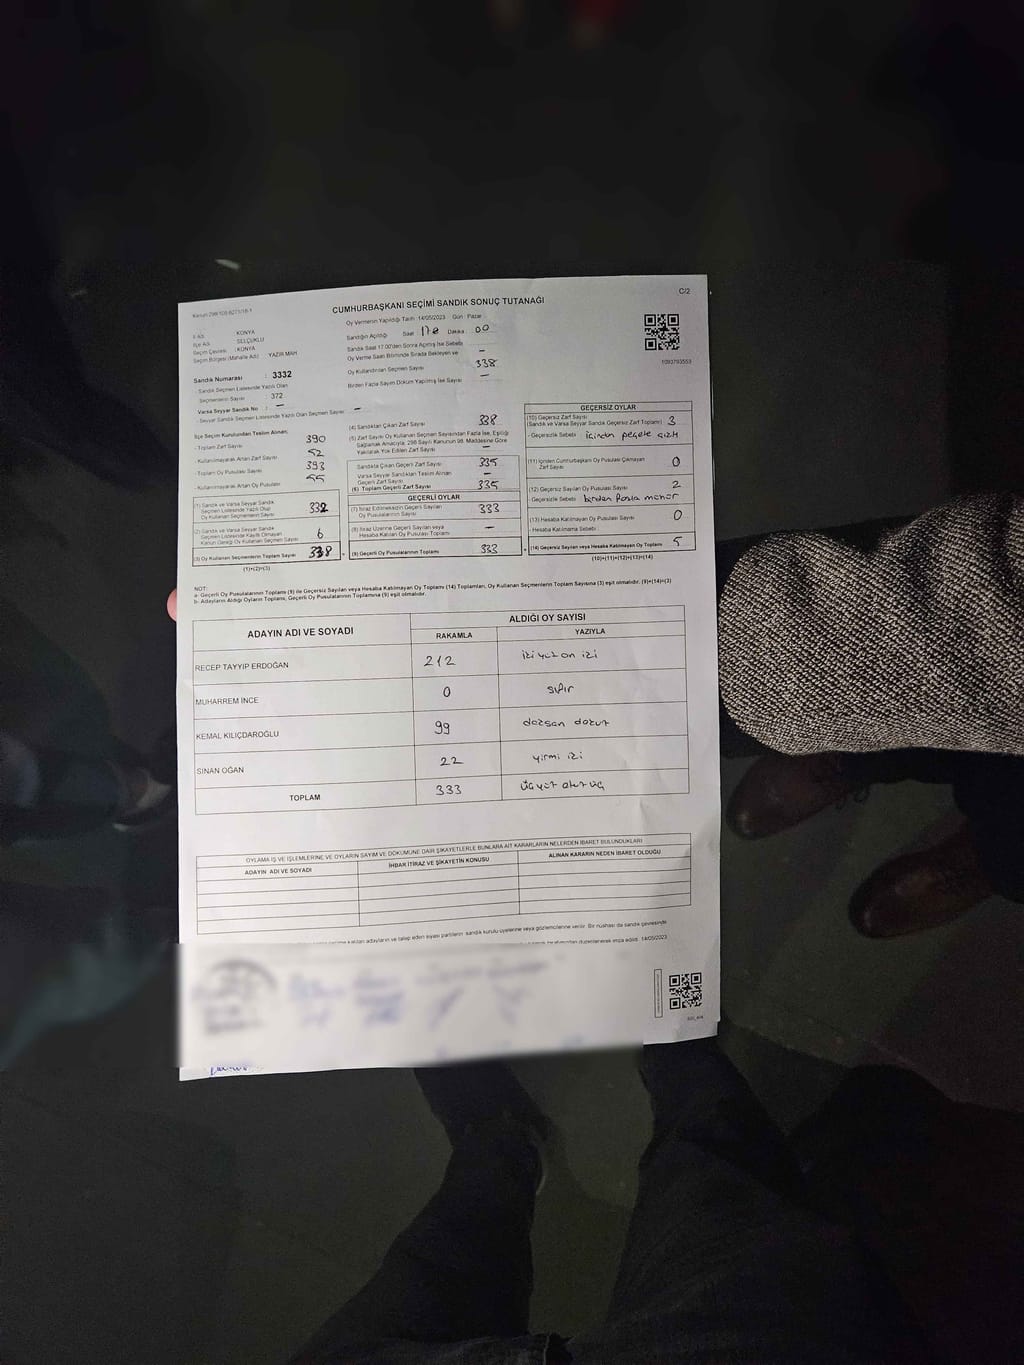 Kanun 298 109 6271/18-1
CUMHURBAŞKANI SEÇİMİ SANDIK SONUÇ TUTANAĞI
C/2
İl Adı : KONYA
İlçe Adı : SELÇUKLU
Seçim Çevresi : KONYA
Seçim Bölgesi (Mahalle Adı) : YAZIR MAH
Sandık Numarası : 3332
- Sandık Seçmen Listesinde Yazılı Olan
Seçmenlerin Sayısı : 372
Varsa Seyyar Sandık No : —
- Seyyar Sandık Seçmen Listesinde Yazılı Olan Seçmen Sayısı : —
Oy Vermenin Yapıldığı Tarih :14/05/2023 Gün : Pazar
Sandığın Açıldığı Saat Dakika 00
Sandık Saat 17.00'den Sonra Açılmış İse Sebebi —
Oy Verme Saati Bitiminde Sırada Bekleyen ve
Oy Kullandırılan Seçmen Sayısı 338
Birden Fazla Sayım Döküm Yapılmış İse Sayısı —
1093793553
İlçe Seçim Kurulundan Teslim Alınan:
- Toplam Zarf Sayısı 390
- Kullanılmayarak Artan Zarf Sayısı 52
- Toplam Oy Pusulası Sayısı 393
- Kullanılmayarak Artan Oy Pusulası 55
(1) Sandık ve Varsa Seyyar Sandık
Seçmen Listesinde Yazılı Olup
Oy Kullanan Seçmenlerin Sayısı 332
(2) Sandık ve Varsa Seyyar Sandık
Seçmen Listesinde Kayıtlı Olmayan
Kanun Gereği Oy Kullanan Seçmen Sayısı 6
(3) Oy Kullanan Seçmenlerin Toplam Sayısı 338
(1)+(2)=(3)
(4) Sandıktan Çıkan Zarf Sayısı 338
(5) Zarf Sayısı Oy Kullanan Seçmen Sayısından Fazla İse, Eşitliği
Sağlamak Amacıyla, 298 Sayılı Kanunun 98. Maddesine Göre
Yakılarak Yok Edilen Zarf Sayısı —
Sandıkta Çıkan Geçerli Zarf Sayısı 335
Varsa Seyyar Sandıktan Teslim Alınan
Geçerli Zarf Sayısı —
(6) Toplam Geçerli Zarf Sayısı 335
GEÇERLİ OYLAR
(7) İtiraz Edilmeksizin Geçerli Sayılan
Oy Pusulalarının Sayısı 333
(8) İtiraz Üzerine Geçerli Sayılan veya
Hesaba Katılan Oy Pusulası Toplamı —
(9) Geçerli Oy Pusulalarının Toplamı 333
GEÇERSİZ OYLAR
(10) Geçersiz Zarf Sayısı
(Sandık ve Varsa Seyyar Sandık Geçersiz Zarf Toplamı) 3
- Geçersizlik Sebebi : içinden peçete çıktı
(11) İçinden Cumhurbaşkanı Oy Pusulası Çıkmayan
Zarf Sayısı 0
(12) Geçersiz Sayılan Oy Pusulası Sayısı 2
- Geçersizlik Sebebi : birden fazla mühür
(13) Hesaba Katılmayan Oy Pusulası Sayısı 0
- Hesaba Katılmama Sebebi :
(14) Geçersiz Sayılan veya Hesaba Katılmayan Oy Toplamı 5
(10)+(11)+(12)+(13)=(14)
NOT:
a- Geçerli Oy Pusulalarının Toplamı (9) ile Geçersiz Sayılan veya Hesaba Katılmayan Oy Toplamı (14) Toplamları, Oy Kullanan Seçmenlerin Toplam Sayısına (3) eşit olmalıdır. (9)+(14)=(3)
b- Adayların Aldığı Oyların Toplamı, Geçerli Oy Pusulalarının Toplamına (9) eşit olmalıdır.
ADAYIN ADI VE SOYADI ALDIĞI OY SAYISI
RAKAMLA YAZIYLA
RECEP TAYYİP ERDOĞAN 212 iki yüz on iki
MUHARREM İNCE 0 sıfır
KEMAL KILIÇDAROĞLU 99 doksan dokuz
SİNAN OĞAN 22 yirmi iki
TOPLAM 333 üç yüz otuz üç
OYLAMA İŞ VE İŞLEMLERİNE VE OYLARIN SAYIM VE DÖKÜMÜNE DAİR ŞİKAYETLERLE BUNLARA AİT KARARLARIN NELERDEN İBARET BULUNDUKLARI
ADAYIN ADI VE SOYADI İHBAR İTİRAZ VE ŞİKAYETİN KONUSU ALINAN KARARIN NEDEN İBARET OLDUĞU
katılan adayların ve talep eden siyasi partilerin sandık kurulu üyelerine veya gözlemcilerine verilir. Bir nüshası da sandık çevresinde
tarafımızdan düzenlenerek imza edildi. 14/05/2023